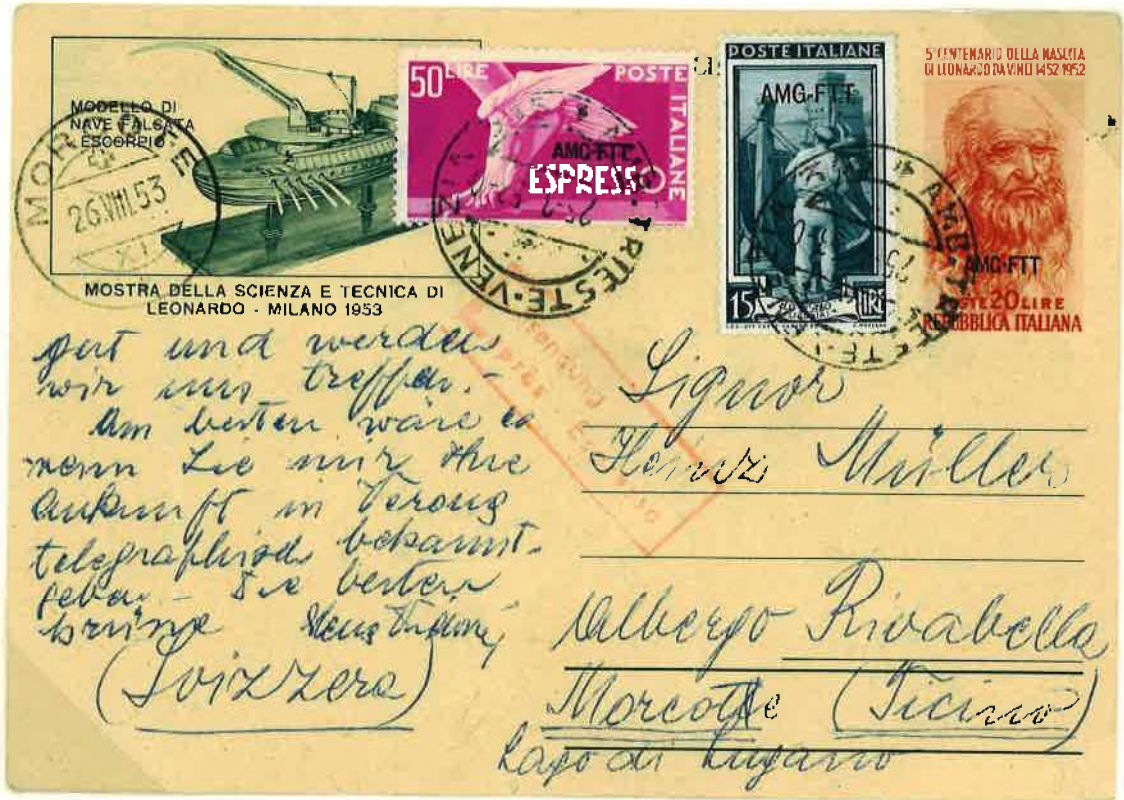 MODELLO DI
NAVE FALCATA
ESCORPIO
MOSTRA DELLA SCIENZA E TECNICA DI
LEONARDO - MILANO 1953
MORCOTE
26.VIII.53
XI
50 LIRE POSTE ITALIANE
AMG-FTT
ESPRESSO
TRIESTE-VENEZIA
POSTE ITALIANE
AMG-FTT
15 LIRE
AMB. TRIESTE
5° CENTENARIO DELLA NASCITA
DI LEONARDO DA VINCI 1452-1952
AMG-FTT
POSTE 20 LIRE
REPUBBLICA ITALIANA
Exprès - Espresso
gut und werden
wir uns treffen. -
Am besten wäre es
wenn Sie mir Ihre
Ankunft in Verona
telegraphisch bekannt-
geben. - Die besten
Grüsse
(Svizzera)
Signor
Heinz Müller
Albergo Rivabella
Morcote (Ticino)
Lago di Lugano